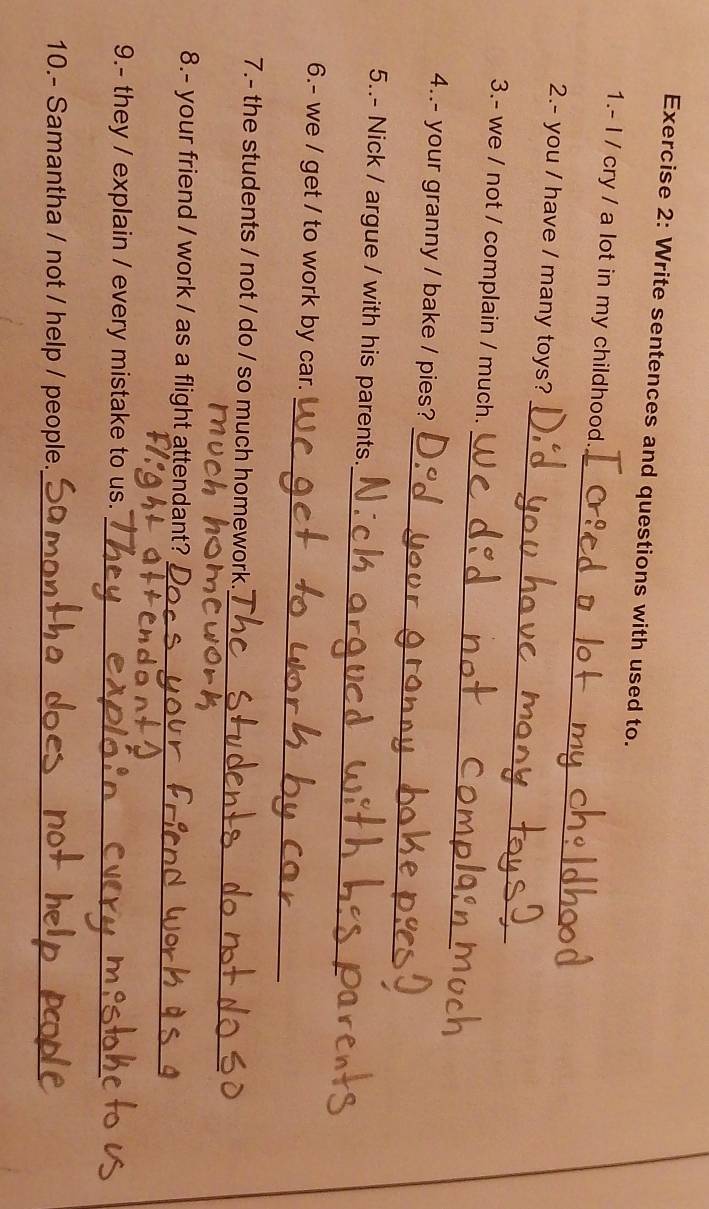 Exercise 2: Write sentences and questions with used to.
1.- I / cry / a lot in my childhood. I cried a lot my childhood
2.- you / have / many toys? Did you have many toys?
3.- we / not / complain / much. We did not complain much
4..- your granny / bake / pies? Did your granny bake pies?
5..- Nick / argue / with his parents. Nick argued with his parents
6.- we / get / to work by car. We get to work by car
7.- the students / not / do / so much homework. The students do not do so
much homework
8.- your friend / work / as a flight attendant? Does your friend work as a
flight attendant?
9.- they / explain / every mistake to us. They explain every mistake to us
10.- Samantha / not / help / people. Samantha does not help people